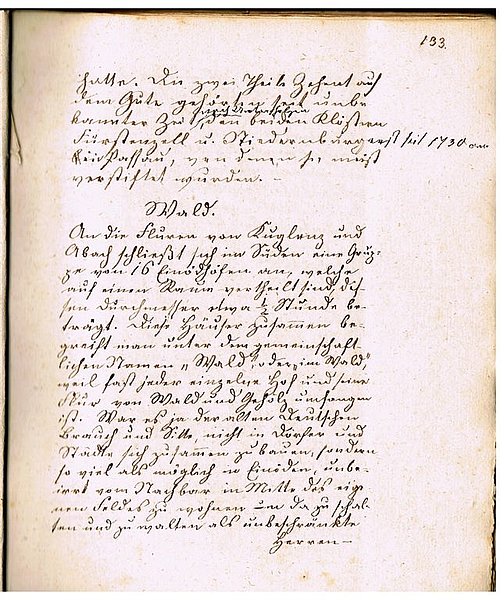 133.
hatte. Die zwei Theile Zehent auf
dem Gute gehörten seit unbe
kannter Zeit den beiden Klöstern
Fürstenzell u. Niedernburg erst seit 1730 an
Passau, von denen sie müßt
verstiftet wurden. –
Wald.
An die Fluren von Kuglenz und
Abach schließt sich im Süden eine Grup-
pe von 16 Einödhöfen an, welche
auf einen Raum vertheilt sind, des-
sen Durchmesser etwa ½ Stunde be-
trägt. Diese Häuser zusammen be-
greift man unter dem gemeinschaft-
lichen Namen „Wald“, oder „im Wald“,
weil fast jeder einzelne Hof und seine
Flur von Wald und Gehölz umfangen
ist. War es ja der alten Deutschen
Brauch und Sitte, nicht in Dörfer und
Städte sich zusammen zu bauen, sondern
so viel als möglich in Einöden, unbe-
irrt vom Nachbar in Mitte des eige
nen Feldes zu wohnen um da zu schal-
ten und zu walten als unbeschränkte
Herren –